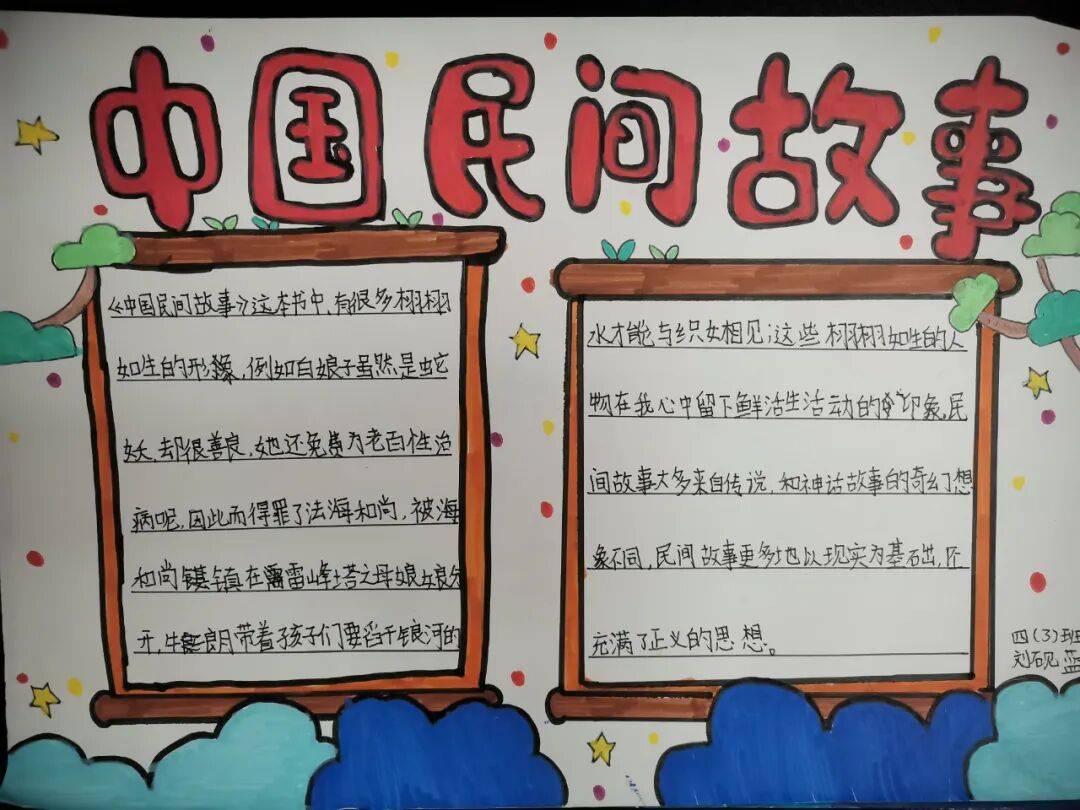 中国民间故事
《中国民间故事》这本书中,有很多栩栩
如生的形象,例如白娘子虽然是蛇
妖,却很善良,她还免费为老百性治
病呢,因此而得罪了法海和尚,被海
和尚镇在雷峰塔之母娘娘分
开,牛郎带着孩子们要舀干银河的
水才能与织女相见;这些栩栩如生的人
物在我心中留下鲜活生活动的印象,民
间故事大多来自传说,和神话故事的奇幻想
象不同,民间故事更多地以现实为基础,
充满了正义的思想。
四(3)班
刘砚蓝